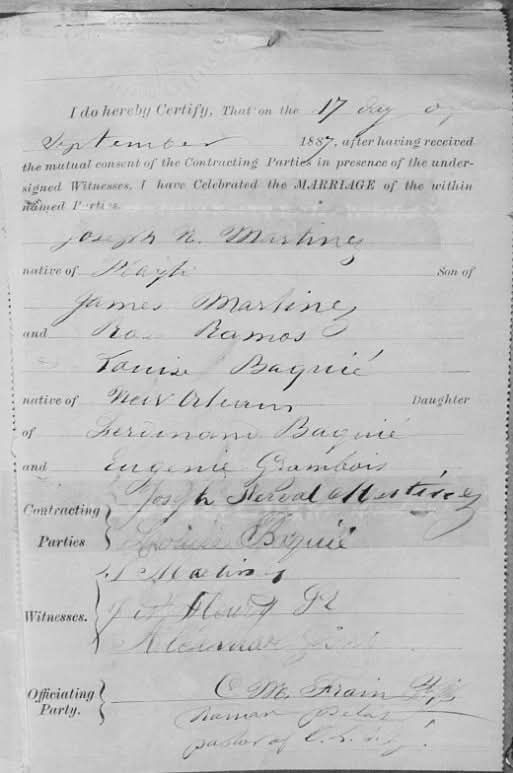 I do hereby Certify, That on the 17 day of
September 1887, after having received
the mutual consent of the Contracting Parties in presence of the under-
signed Witnesses, I have Celebrated the MARRIAGE of the within
named Parties.
Joseph N. Martinez
native of Son of
James Martinez
and Rosa Ramos
Louise Baquié
native of New Orleans Daughter
of Ferdinand Baquié
and Eugenie Grambois
Contracting Parties
Joseph Nerval Martinez
Louise Baquié
Witnesses.
Martinez
Jr
Officiating Party.
C. M. Frain
Roman
pastor of